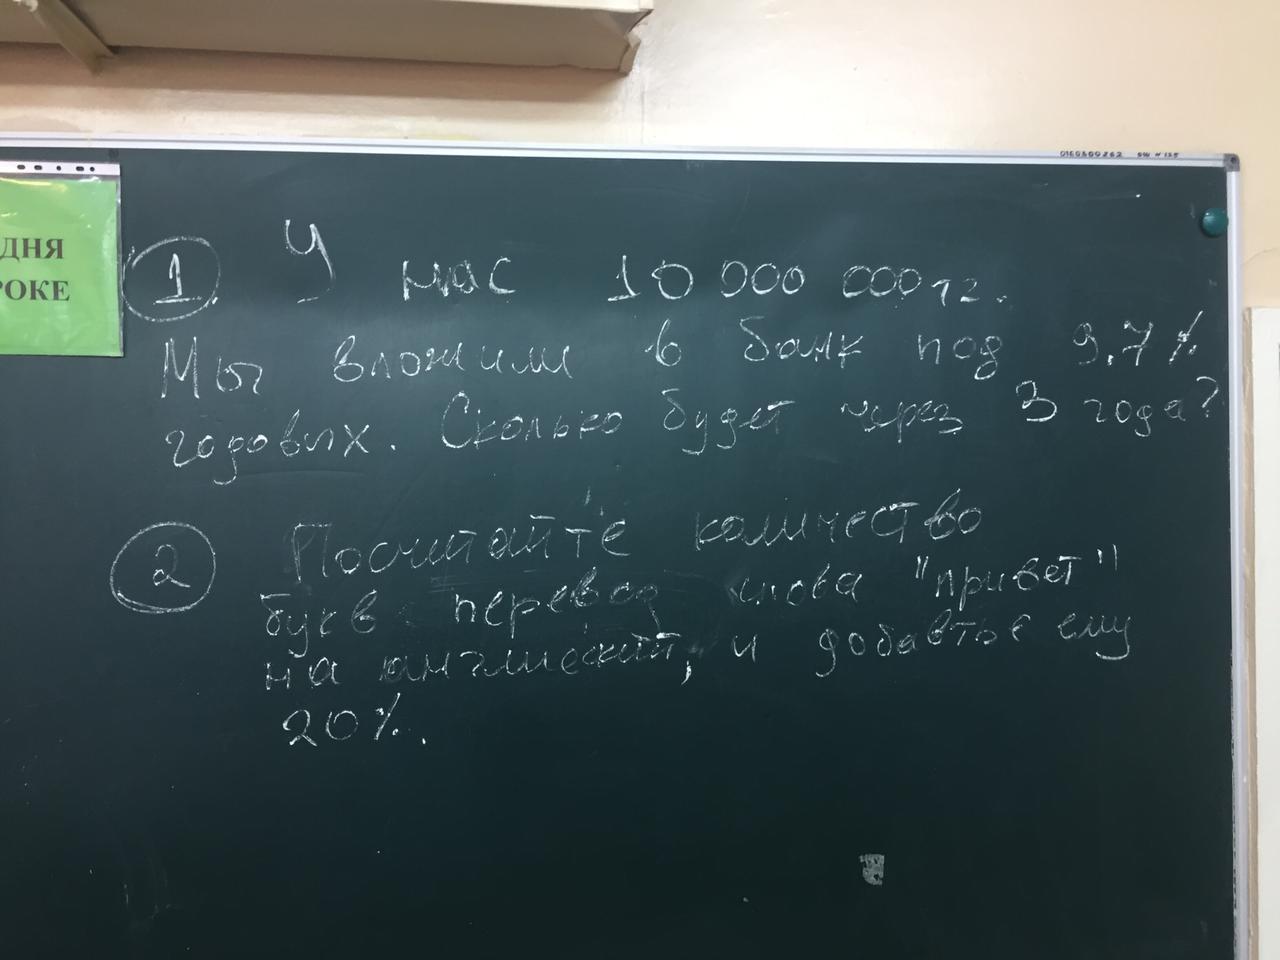 ДНЯ
РОКЕ
① У нас 10 000 000 тг.
Мы вложим в банк под 9.7%
годовых. Сколько будет через 3 года?
② Посчитайте количество
букв перевод слова "привет"
на английский, и добавьте ему
20%.